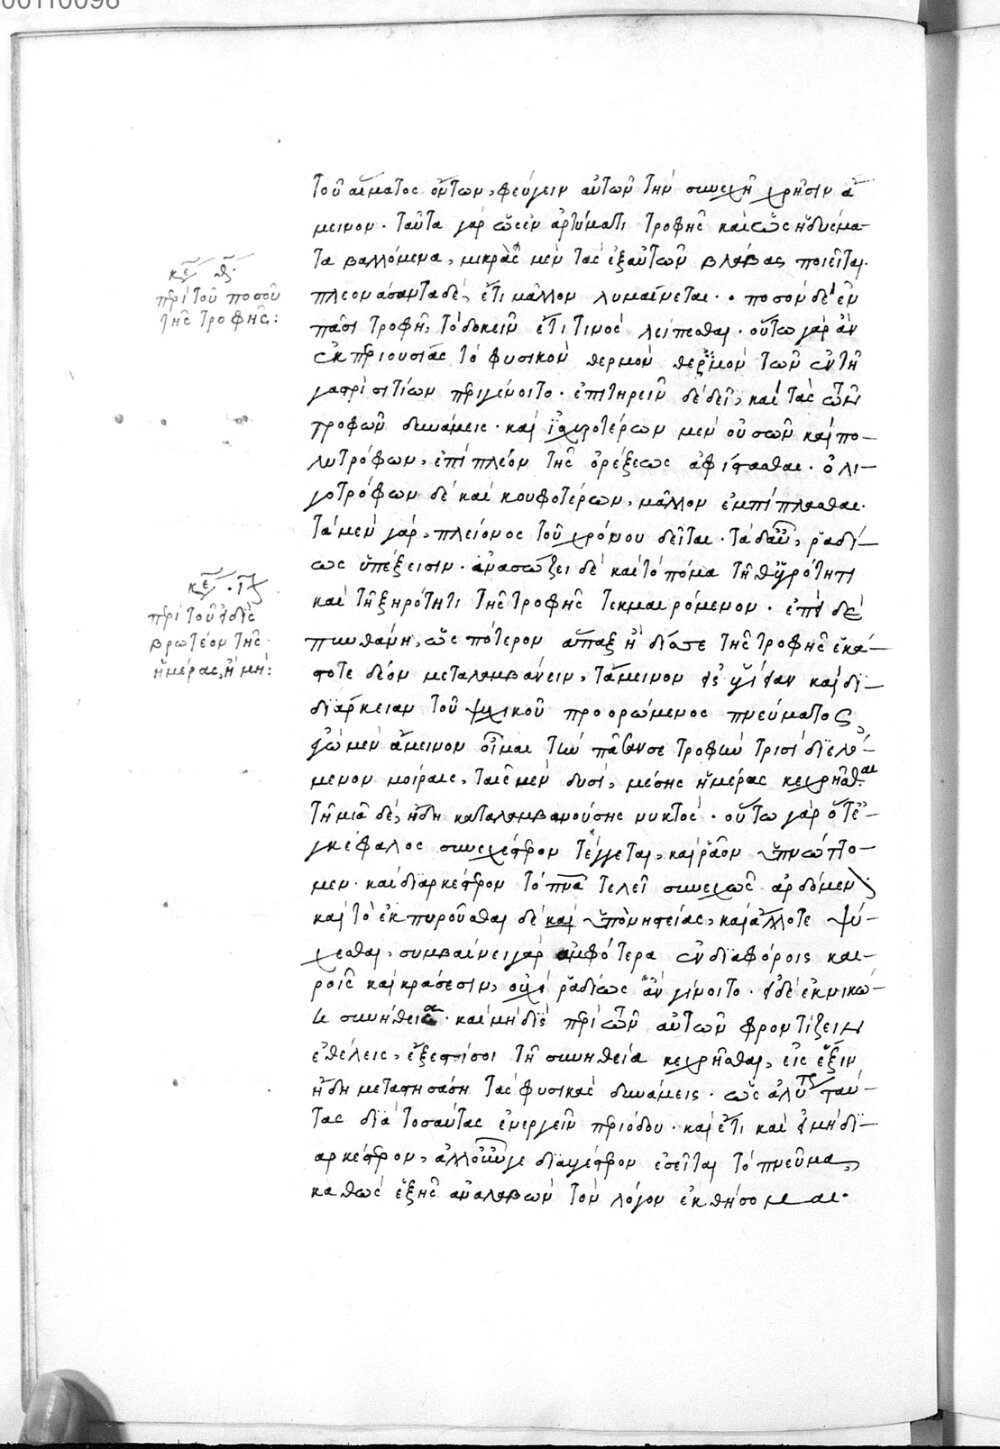 00110096
τοῦ αἵματος ὄντων, φεύγειν αὐτῶν τὴν συνεχῆ χρῆσιν ἄ
μεινον· ταῦτα γὰρ ὡς ἐν ἀρτύματι τροφῆς καὶ ὡς ἡδυσμα
τα βαλλόμενα, μικρὰς μὲν τὰς ἐξ αὐτῶν βλάβας ποιεῖται·
κεφ
περὶ τοῦ ποσοῦ
τῆς τροφῆς:
πλεονάσαντα δὲ, ἔτι μᾶλλον λυμαίνεται· ποσὸν δὲ ἐν
πάσῃ τροφῇ, τὸ δοκεῖν ἔτι τινὸς λείπεσθαι· οὕτω γὰρ ἂν
ἐκ περιουσίας τὸ φυσικὸν θερμὸν τῶν ἐν τῇ
γαστρὶ σιτίων περιγένοιτο· ἐπιτηρεῖν δὲ δεῖ, καὶ τὰς τῶν
τροφῶν δυνάμεις· καὶ ἰσχυροτέρων μὲν οὐσῶν καὶ πο-
λυτρόφων, ἐπιπλέον τῆς ὀρέξεως ἀφίστασθαι· ὀλι-
γοτρόφων δὲ καὶ κουφοτέρων, μᾶλλον ἐμπίπλασθαι·
τὰ μὲν γὰρ, πλείονος τοῦ χρόνου δεῖται· τὰ δ' αὖ, ῥαδί-
ως ὑπέξεισιν· ἀνασώζει δὲ καὶ τὸ πόμα τῇ θ' ὑγρότητι
καὶ τῇ ξηρότητι τῆς τροφῆς τεκμαιρόμενον· ἐπεὶ δὲ
κεφ
περὶ τοῦ εἰ δὶς
βρωτέον τῆς
ἡμέρας, ἢ μή:
πυνθάνῃ, ὡς πότερον ἅπαξ ἢ δίς σε τῆς τροφῆς ἑκά-
στοτε δέον μεταλαμβάνειν, τἄμεινον εἰς ὑγίειαν καὶ δι-
διάρκειαν τοῦ ψυχικοῦ προορώμενος πνεύματος,
ἐγὼ μὲν ἄμεινον οἶμαι τὴν πᾶσάν σε τροφὴν τρισὶ διελό-
μενον μοίραις, ταῖς μὲν δυσὶ, μέσης ἡμέρας κεχρῆσθαι
τῇ μιᾷ δὲ, ἤδη καταλαμβανούσης νυκτός· οὕτω γὰρ ὅ τε ἐ-
γκέφαλος συνεχέστερον τέγγεται, καὶ ῥᾷον ὑπνώττο-
μεν· καὶ διαρκέστερον τὸ πνα τελεῖ συνεχῶς ἀρδόμεν
καὶ τὸ ἐκπυροῦσθαι δὲ καὶ ὑπὸ νηστείας, καὶ ἄλλοτε ψύ-
χεσθαι, συμβαίνει γὰρ ἀμφότερα ἐν διαφόροις και-
ροῖς καὶ κράσεσιν, οὐχὶ ῥαδίως ἂν γένοιτο· εἰ δὲ ἐκνικώ-
σῃ συνήθεια· καὶ μὴ δὶς περὶ τῶν αὐτῶν φροντίζειν
ἐθέλεις, ἔξεστί σοι τῇ συνηθείᾳ κεχρῆσθαι, εἰς ἕξιν
ἤδη μεταστησάσῃ τὰς φυσικὰς δυνάμεις· ὡς ἀλύπως ταύ-
τας διὰ τοσαύτας ἐνεργεῖν περιόδου· καὶ ἔτι καὶ εἰ μὴ δι-
αρκέστερον, ἀλλ' οὖν γε διαυγέστερον ἐσεῖται τὸ πνεῦμα,
καθὼς ἑξῆς ἀναλαβὼν τὸν λόγον ἐκθήσομαι·